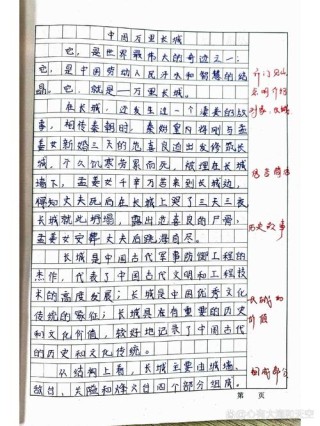 中国万里长城
它，是世界最伟大的奇迹之一；
它，是中国劳动人民汗水和智慧的结
晶。它，就是——万里长城。
在长城，还发生过一个凄美的故
事，相传秦朝时，秦始皇内得刚与孟
姜女新婚三天的范喜良迫出发修筑长
城，不久饥寒劳累而死，被埋在长城
墙下，孟姜女千辛万苦来到长城边，
得知丈夫死后在长城上哭了三天三夜
长城就此坍塌，露出范喜良的尸骨，
孟姜女安葬丈夫后跳海自尽。
长城是中国古代军事防御工程的
杰作，代表了中国古代文明和工程技
术的高度发展；长城是中国优秀文化
传统的象征；长城具有重要的历史
和文化价值，较好地记录了中国古代
的历史和文化传统。
从结构上看，长城主要由城墙、
敌台、关隘和烽火台四个部分组成。
开门见山
点明介绍
对象：长城
历史故事
长城的
价值
组成部分
第 页